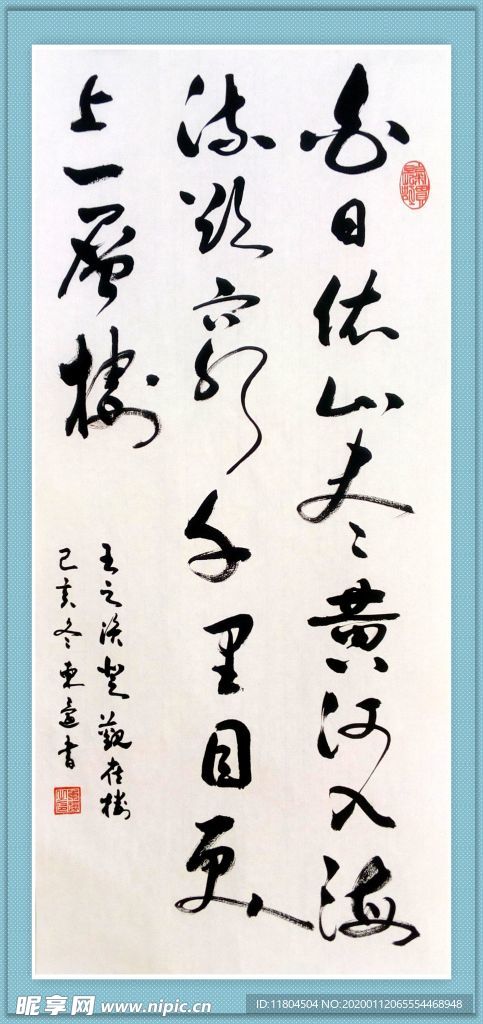 白日依山尽黄河入海
流欲窮千里目更
上一層樓
王之渙登觀雀樓
己亥冬東遠書
昵享网 www.nipic.cn
ID:11804504 NO:20200112065554468948